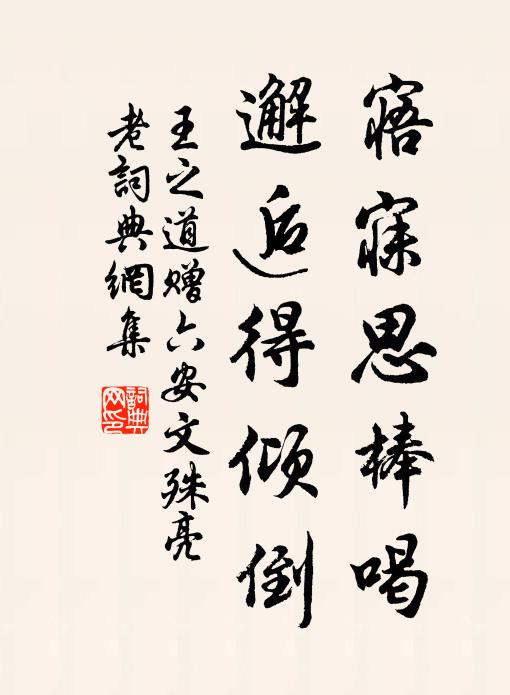 寤寐思棒喝
邂逅得倾倒
王之道赠六安文殊亮
老詞典網集
詞典网印